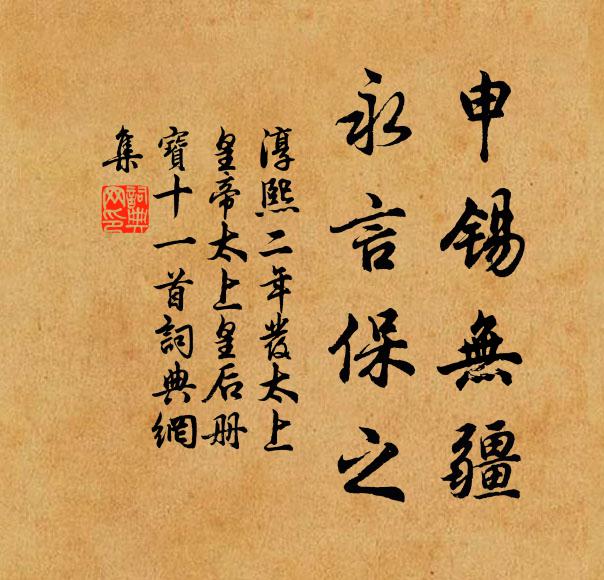 申錫無疆
永言保之
淳熙二年發太上
皇帝太上皇后册
寶十一首詞典網
集
詞典
网印